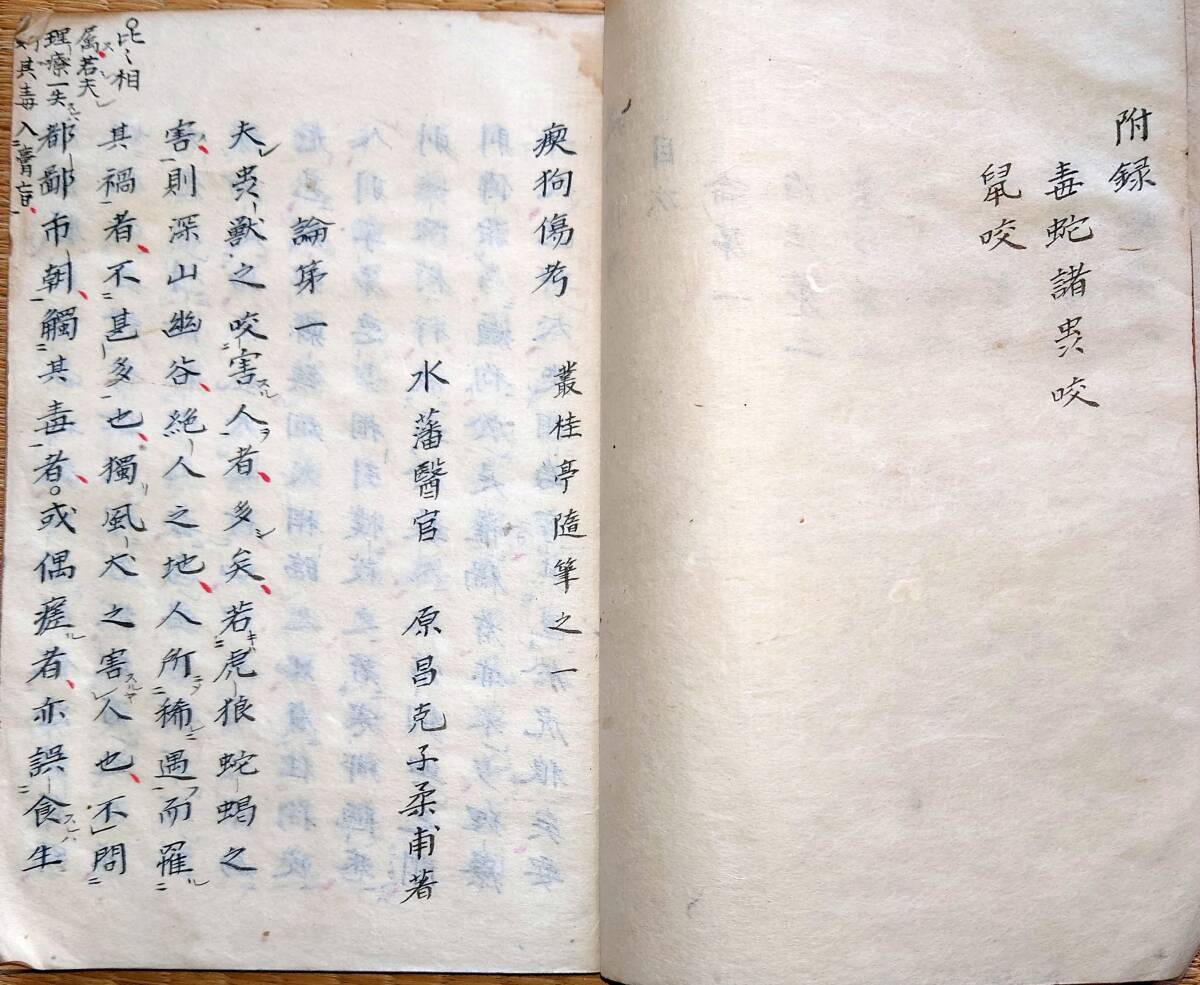 附録
毒蛇諸蟲咬
鼠咬
瘈狗傷考　叢桂亭隨筆之一
水藩醫官　原昌克子柔甫著
論第一
夫蟲獸之咬害人者多矣若虎狼蛇蝎之
害則深山幽谷絶人之地人所稀遇而罹
其禍者不甚多也獨風犬之害人也不問
都鄙市朝觸其毒者或偶瘥者亦誤食生
比〻相
属若夫
理療一失
其毒入膏肓